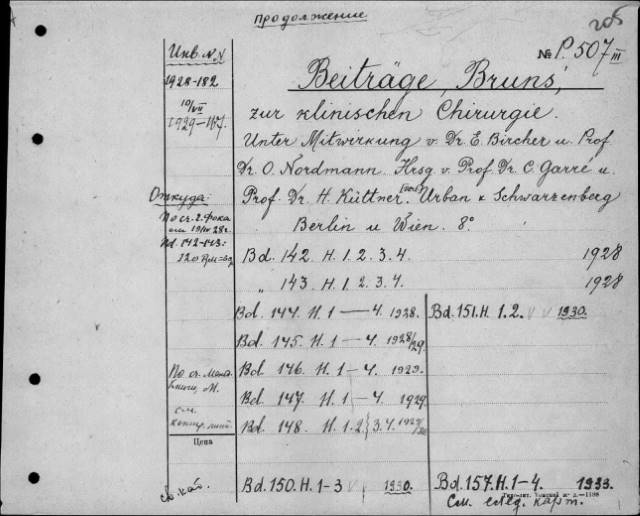 продолжение
205
Инв. №№
№ P. 507 III
1928-182
Beiträge, Bruns',
10/VII
1929-167.
zur klinischen Chirurgie.
Unter Mitwirkung v. Dr. E. Bircher u. Prof.
Dr. O. Nordmann. Hrsg. v. Prof. Dr. C. Garré u.
Откуда:
Prof. Dr. H. Küttner. Urban & Schwarzenberg
По сч. г. Фока
Berlin u. Wien. 8°.
от 19/IV 28 г.
Bd. 142. H. 1. 2. 3. 4. 1928
„ 143. H. 1. 2. 3. 4. 1928
Bd. 144. H. 1 — 4. 1928.
Bd. 151. H. 1. 2. v v 1930.
Bd. 145. H. 1 — 4. 1928/29.
По сч.
Bd. 146. H. 1 — 4. 1929.
М.
Bd. 147. H. 1 — 4. 1929.
см.
Bd. 148. H. 1. 2 } 3. 4. 1929/30
Цена
Bd. 150. H. 1-3 v 1930.
Bd. 157. H. 1-4. 1933.
См. след. карт.